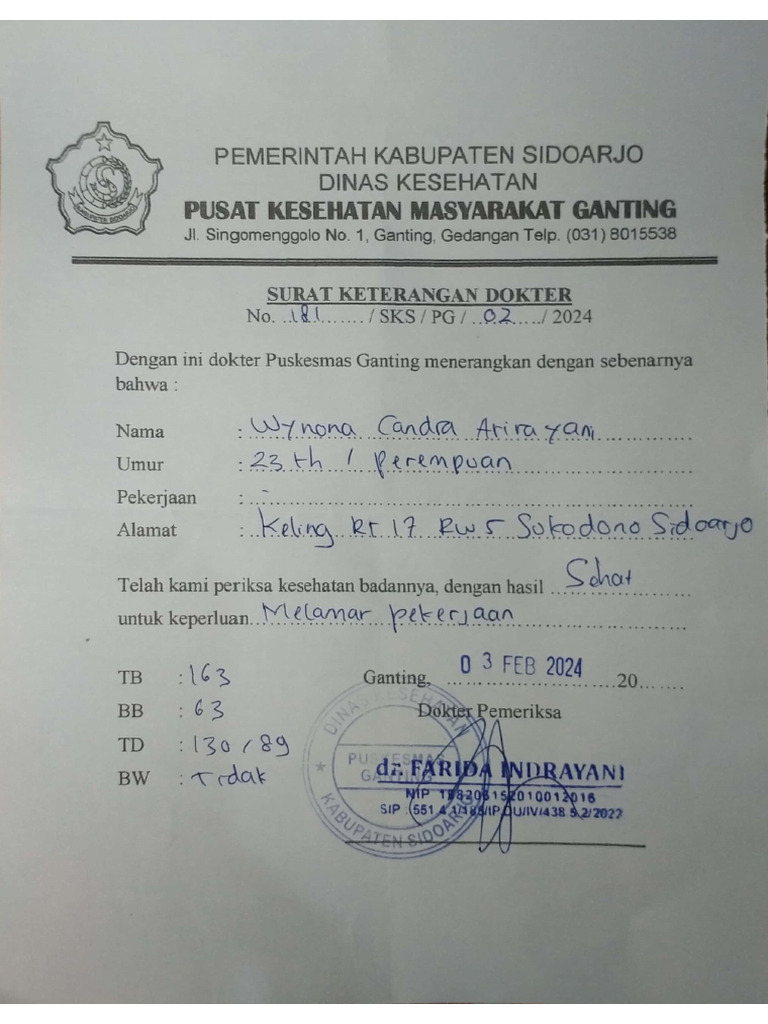 PEMERINTAH KABUPATEN SIDOARJO
DINAS KESEHATAN
PUSAT KESEHATAN MASYARAKAT GANTING
Jl. Singomenggolo No. 1, Ganting, Gedangan Telp. (031) 8015538
KABUPATEN SIDOARJO
SURAT KETERANGAN DOKTER
No. 181 / SKS / PG / 02 / 2024
Dengan ini dokter Puskesmas Ganting menerangkan dengan sebenarnya
bahwa :
Nama : Wynona Candra Arirayani
Umur : 23 th / perempuan
Pekerjaan : -
Alamat : Keling Rt 17 RW 5 Sukodono Sidoarjo
Telah kami periksa kesehatan badannya, dengan hasil Sehat
untuk keperluan Melamar pekerjaan
TB : 163
Ganting, 03 FEB 2024 20
BB : 63
Dokter Pemeriksa
TD : 130 / 89
BW : Tidak
DINAS KESEHATAN
PUSKESMAS
GANTING
KABUPATEN SIDOARJO
dr. FARIDA INDRAYANI
NIP 198206152010012016
SIP